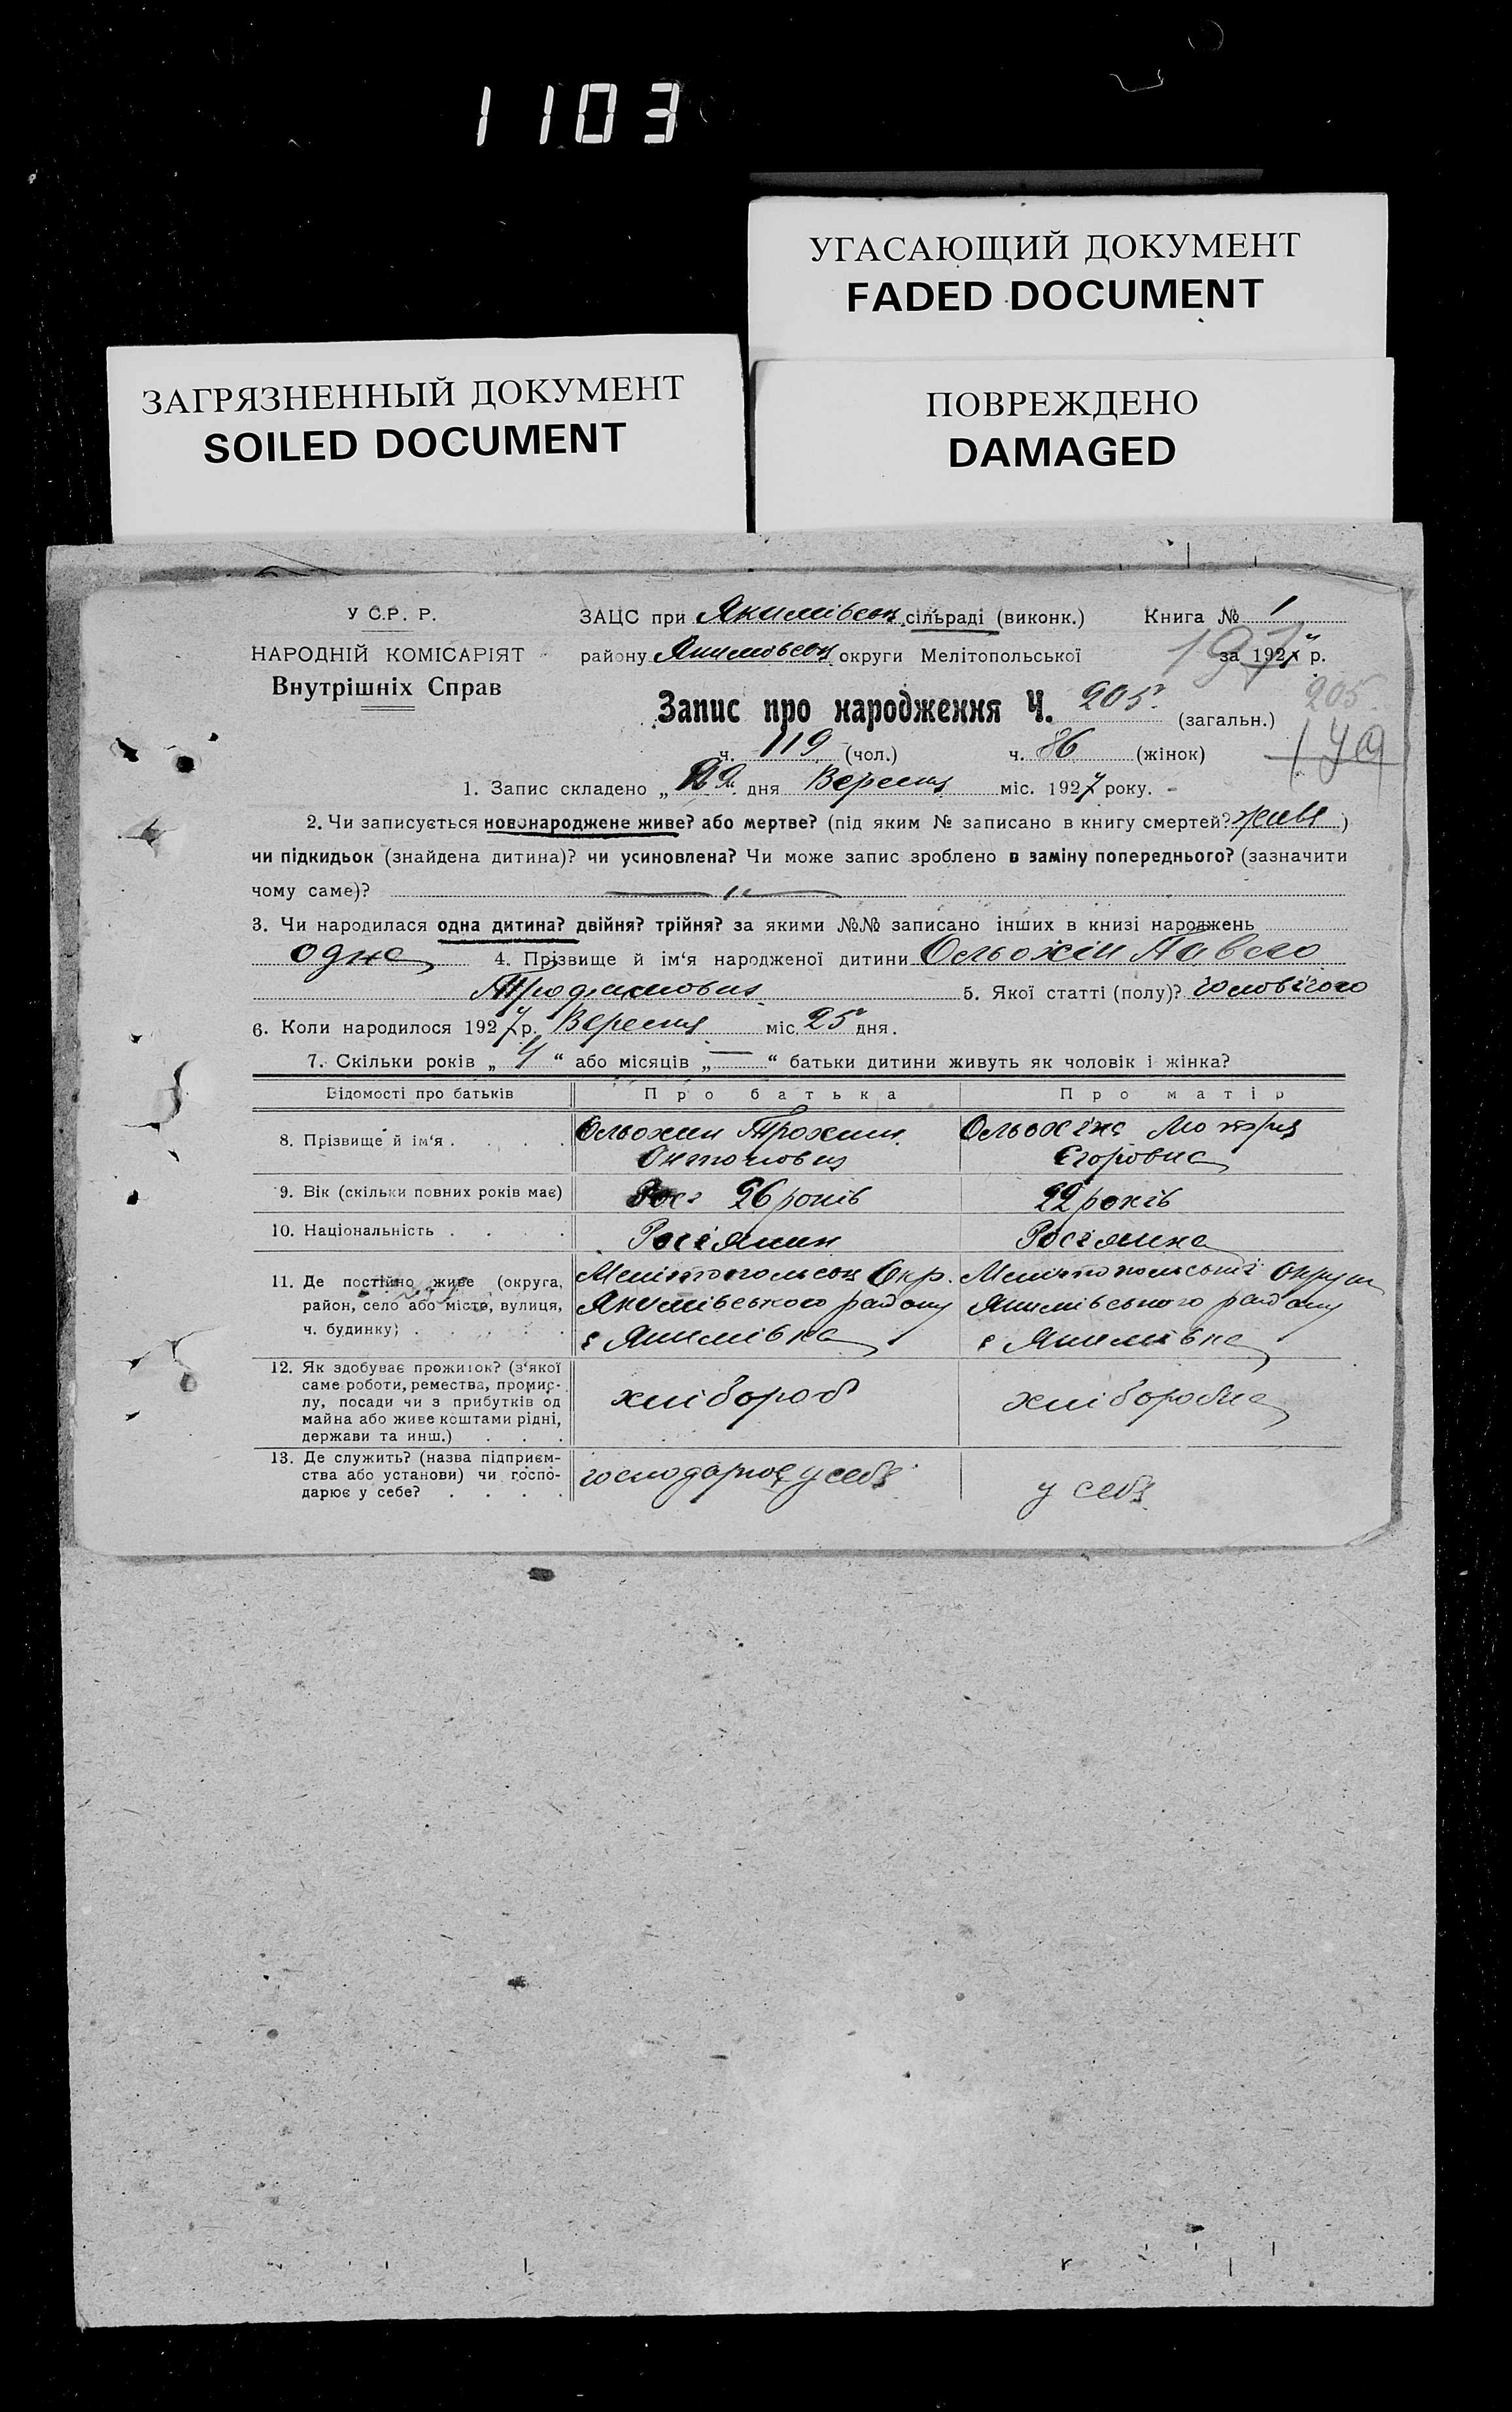 1103
УГАСАЮЩИЙ ДОКУМЕНТ
FADED DOCUMENT
ЗАГРЯЗНЕННЫЙ ДОКУМЕНТ
SOILED DOCUMENT
ПОВРЕЖДЕНО
DAMAGED
У С.Р. Р.
НАРОДНІЙ КОМІСАРІЯТ
Внутрішніх Справ
ЗАЦС при Якимівськ. сільраді (виконк.) Книга № 1
району Якимівськ округи Мелітопольської за 1927 р.
Запис про народження Ч. 205. (загальн.)
205.
179
ч. 119 (чол.) ч. 86 (жінок)
1. Запис складено „ дня Вересня міс. 1927 року.
2. Чи записується новонароджене живе? або мертве? (під яким № записано в книгу смертей? живе )
чи підкидьок (знайдена дитина)? чи усиновлена? Чи може запис зроблено в заміну попереднього? (зазначити
чому саме)?
3. Чи народилася одна дитина? двійня? трійня? за якими №№ записано інших в книзі народжень
одна 4. Прізвище й ім‘я народженої дитини Ольохін Павло
5. Якої статті (полу)? Чоловічого
6. Коли народилося 1927 р. Вересня міс. 25 дня.
7. Скільки років „ 4 “ або місяців „ — “ батьки дитини живуть як чоловік і жінка?
Відомості про батьків Про батька Про матір
8. Прізвище й ім‘я . . . . Ольохин Трохим Ольохіна Мотря
Антонович Єгоровна
9. Вік (скільки повних років має) 26 років 22 років
10. Національність . . . . Росіянин Росіянка
11. Де постійно живе (округа, Мелітопольськ Окр. Мелітопольської округи
район, село або місто, вулиця, Якимівського району Якимівського району
ч. будинку) . . . . . с Якимівка с Якимівка
12. Як здобуває прожиток? (з‘якої
саме роботи, ремества, промис-
лу, посади чи з прибутків од хлібороб хліборобка
майна або живе коштами рідні,
держави та инш.) . . .
13. Де служить? (назва підприєм-
ства або установи) чи госпо- господарює у себе у себе
дарює у себе? . . . .